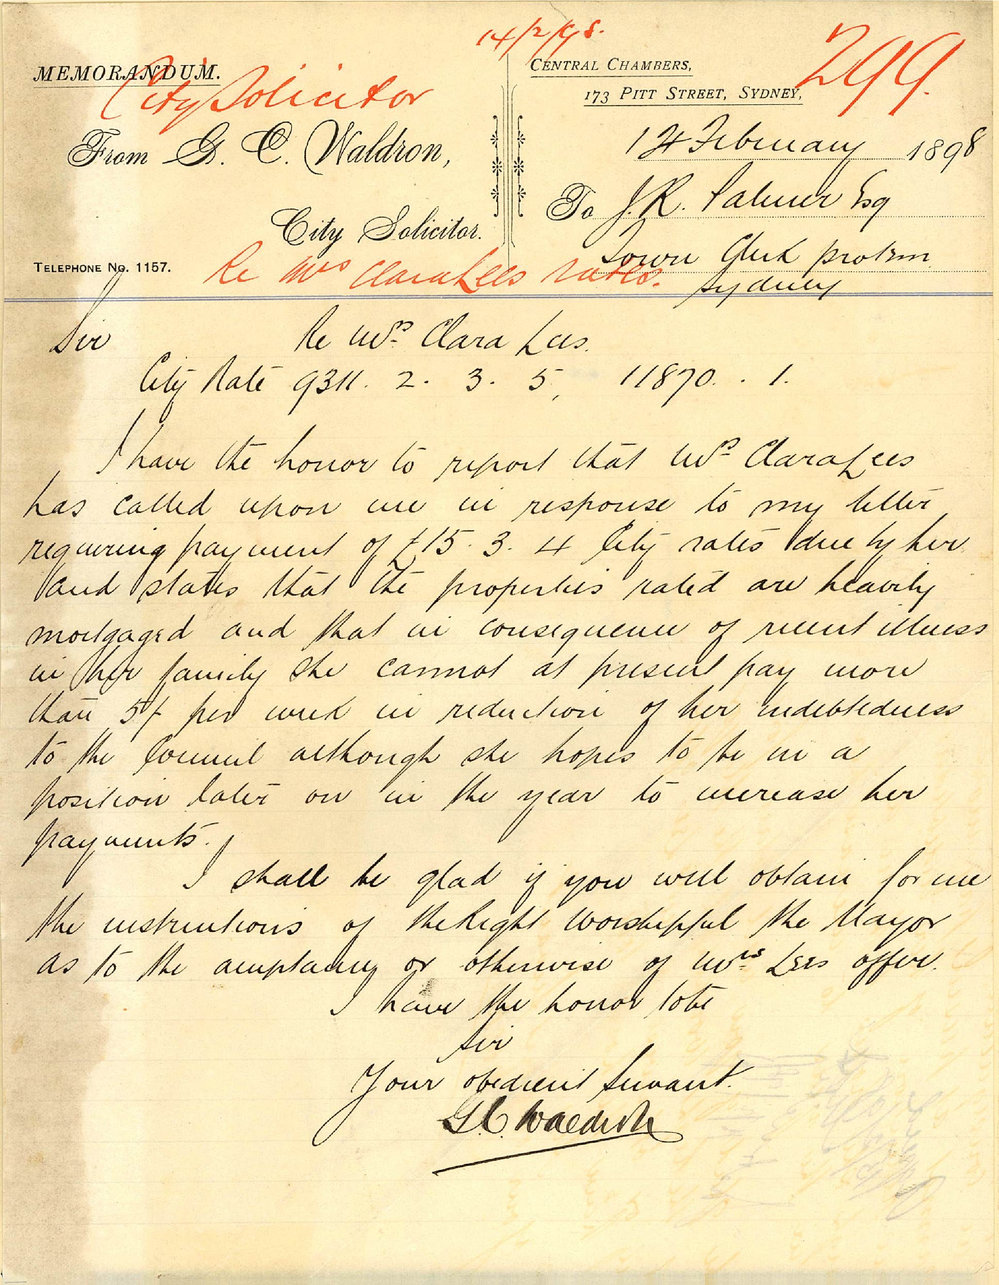 14/2/98.
299.
MEMORANDUM.
City Solicitor
CENTRAL CHAMBERS,
173 PITT STREET, SYDNEY,
From G. C. Waldron,
14 February 1898
To J. R. Palmer Esq
City Solicitor.
Town Clerk protem
TELEPHONE No. 1157.
Re Mrs Clara Lees rates.
Sydney
Sir
Re Mrs. Clara Lees.
City Rate 9311. 2. 3. 5, 11870. . 1.
I have the honor to report that Mrs. Clara Lees
has called upon me in response to my letter
requiring payment of £15. 3. 4 City rates due by her
and states that the properties rated are heavily
mortgaged and that in consequence of recent illness
in her family she cannot at present pay more
than 5/- per week in reduction of her indebtedness
to the Council although she hopes to be in a
position later on in the year to increase her
payments.
I shall be glad if you will obtain for me
the instructions of the Right Worshipful the Mayor
as to the acceptance or otherwise of Mrs Lees offer.
I have the honor to be
Sir
Your obedient Servant.
G. C. Waldron